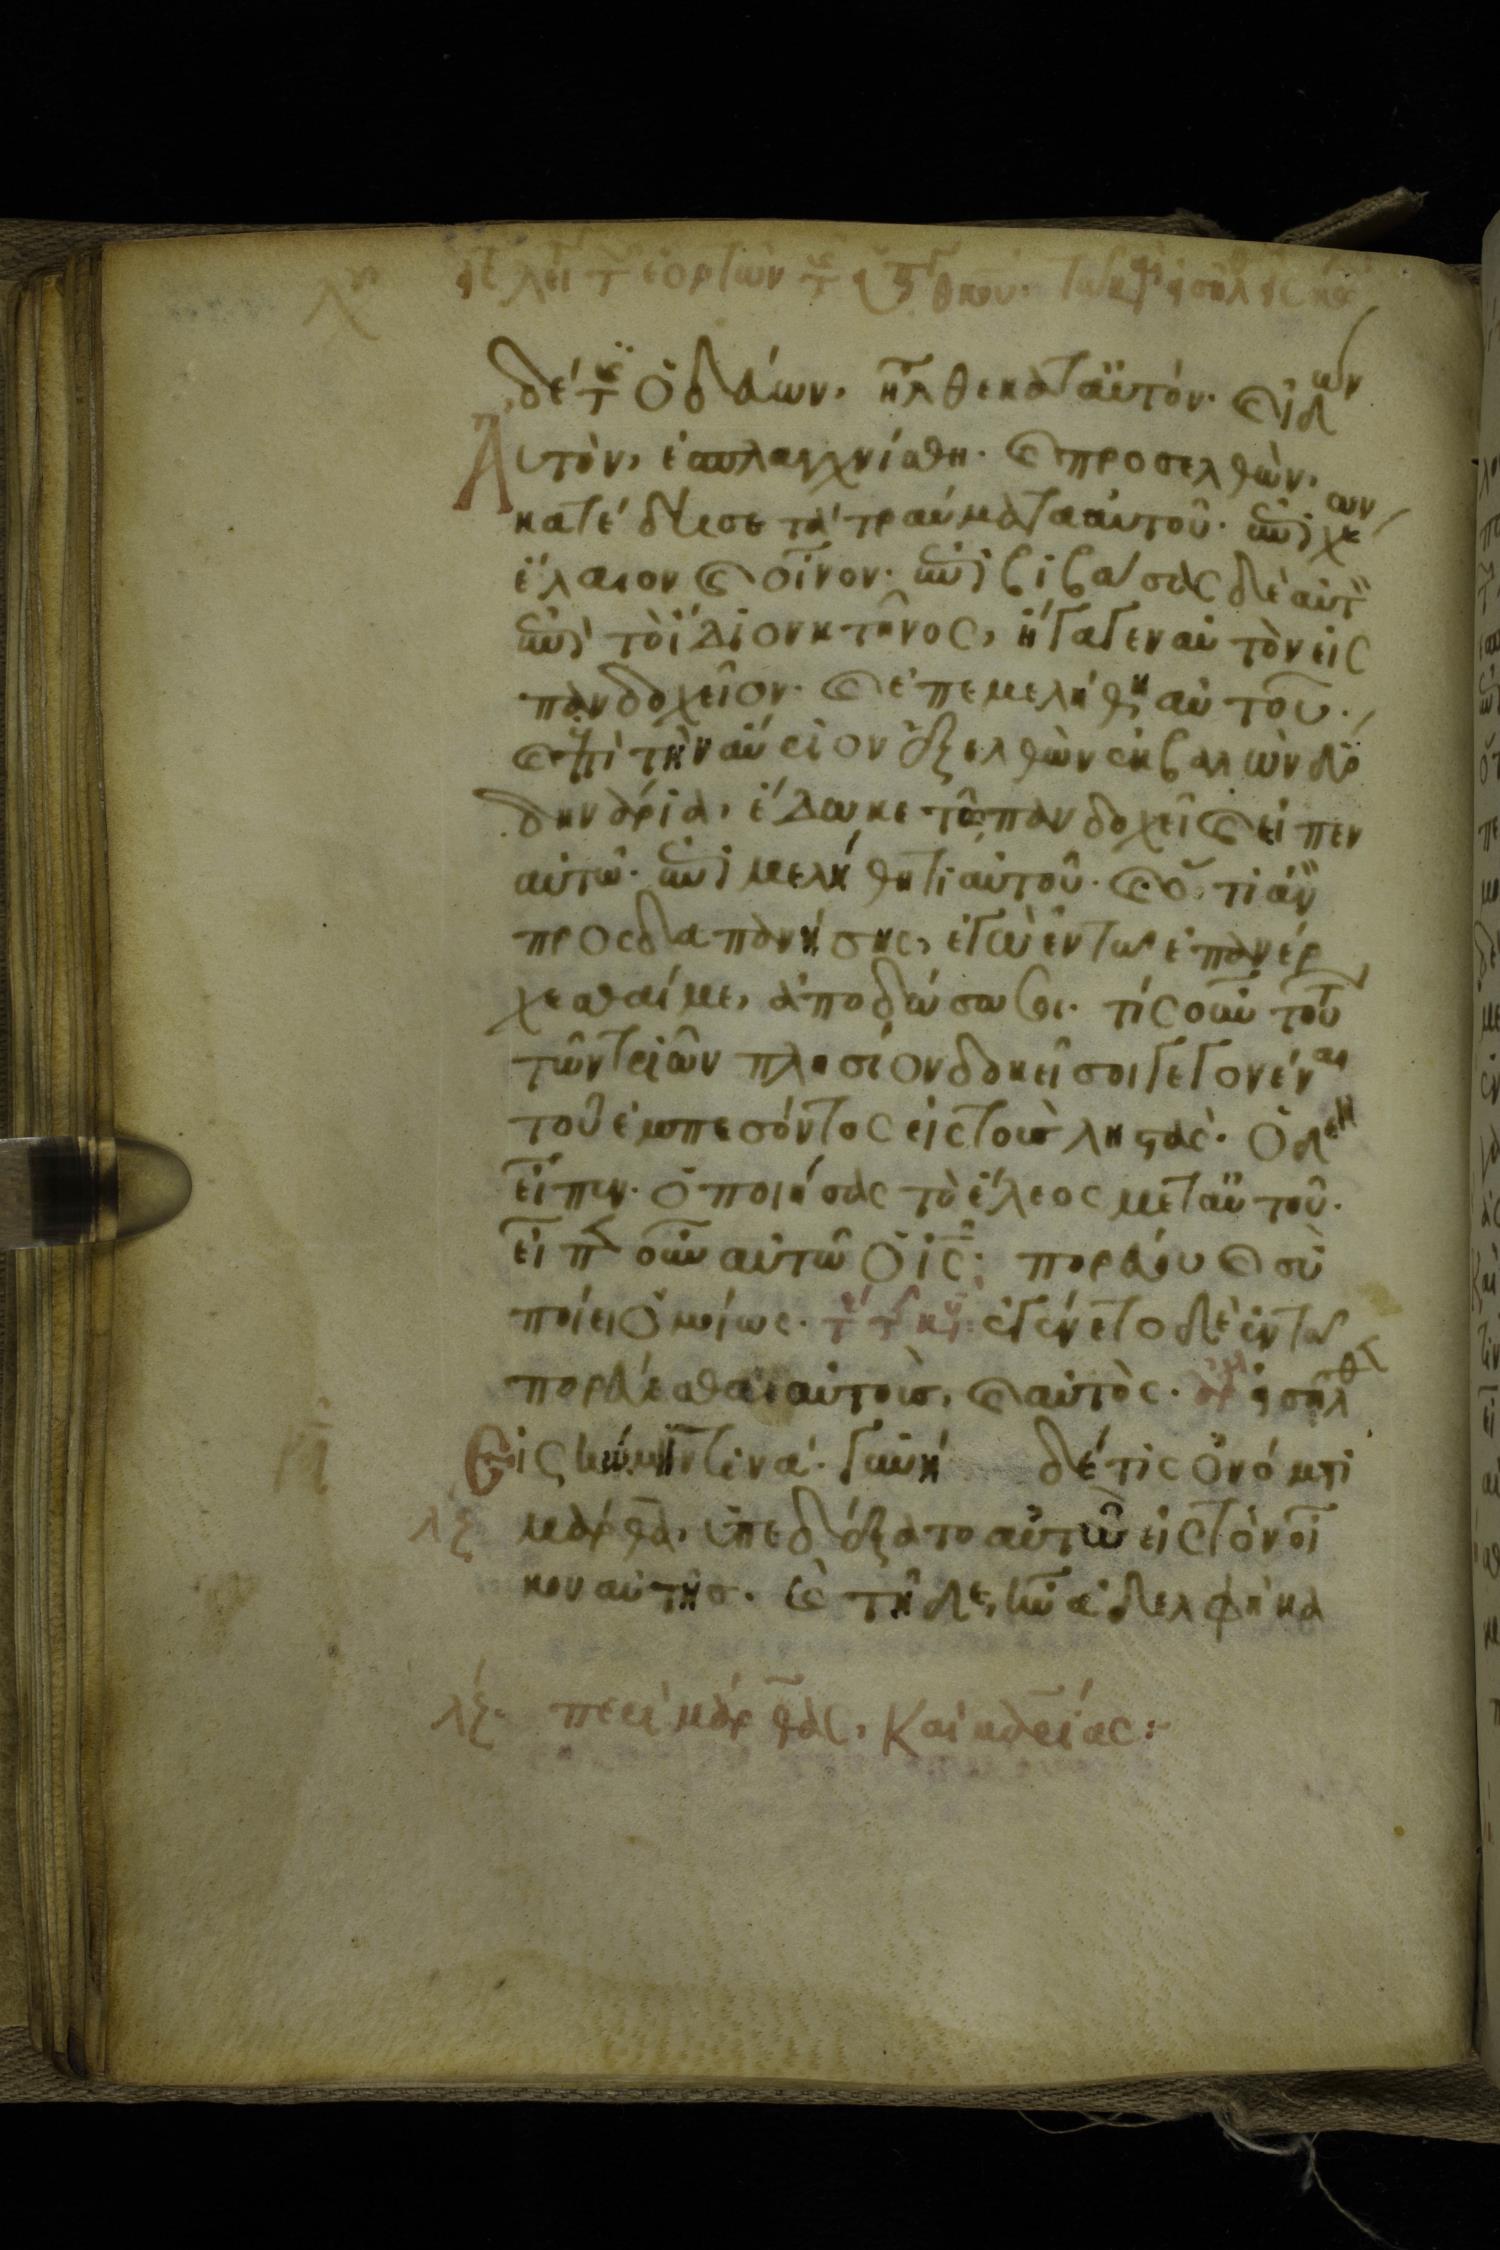 δέ τις ὁδεύων, ἦλθε κατ αὐτόν· καὶ ἰδὼν
αὐτὸν, ἐσπλαγχνίσθη· καὶ προσελθὼν,
κατέδησε τὰ τραύματα αὐτοῦ· ἐπιχέων
ἔλαιον καὶ οἶνον· ἐπιβιβάσας δὲ αὐτὸν
ἐπὶ τὸ ἴδιον κτῆνος, ἤγαγεν αὐτὸν εἰς
πανδοχεῖον· καὶ ἐπεμελήθη αὐτοῦ·
καὶ ἐπὶ τὴν αὔριον ἐξελθὼν ἐκβαλὼν δύο
δηνάρια, ἔδωκε τῶ πανδοχεῖ καὶ εἶπεν
αὐτῶ· ἐπιμελήθητι αὐτοῦ· καὶ ὅ, τι ἂν
προσδαπανήσης, ἐγὼ ἐν τῶ ἐπανέρ
χεσθαί με, ἀποδώσω σοι· τίς οὖν τού
τῶν τριῶν πλησίον δοκεῖ σοι γεγονέναι
τοῦ ἐμπεσόντος εἰς τοὺς ληστάς· ὁ δὲ
εἶπεν· ὁ ποιήσας τὸ ἔλεος μετ αὐτοῦ·
εἶπεν οὖν αὐτῶ ὁ ις· πορεύου καὶ σὺ
ποίει ὁμοίως· ἐγένετο δὲ ἐν τῶ
πορεύεσθαι αὐτοὺς, καὶ αὐτὸς· εἰσῆλθεν
εἰς κώμην τινά· γυνὴ δέ τις ὀνόματι
λξ μάρθα, ὑπεδέξατο αὐτὸν εἰς τὸν οἶ
κον αὐτῆς· καὶ τῆδε ἦν ἀδελφὴ κα
λξ· περὶ μάρθας, καὶ μαρίας: